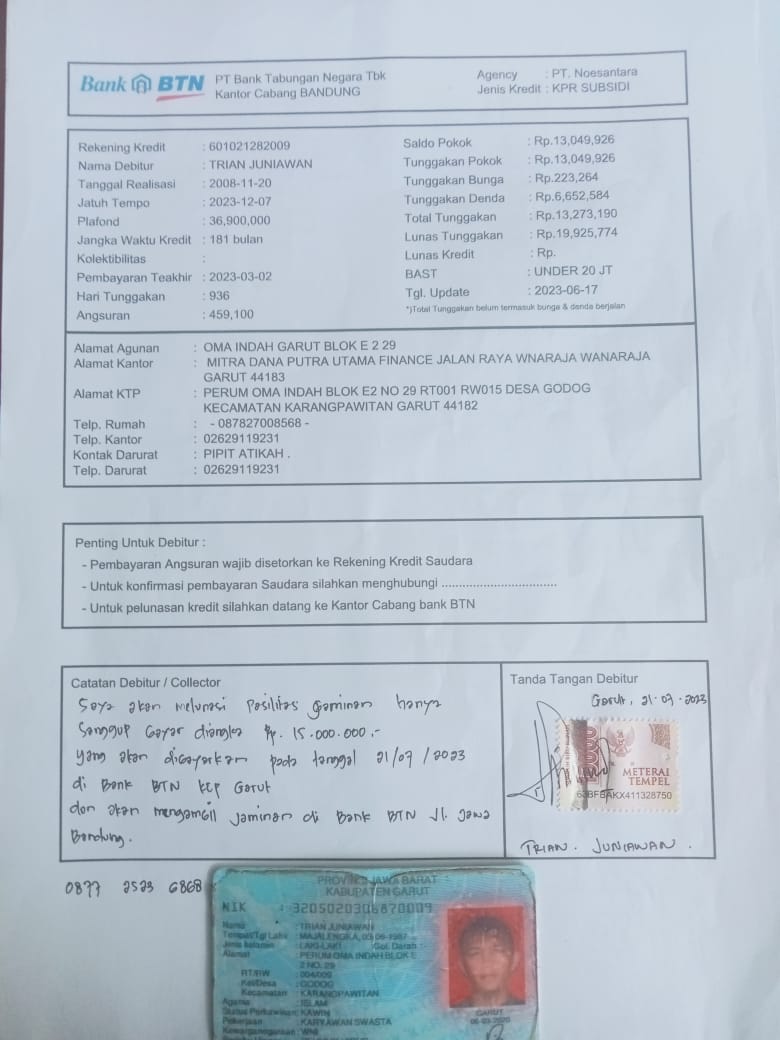 Bank BTN PT Bank Tabungan Negara Tbk
Kantor Cabang BANDUNG
Agency : PT. Noesantara
Jenis Kredit : KPR SUBSIDI
Rekening Kredit : 601021282009
Nama Debitur : TRIAN JUNIAWAN
Tanggal Realisasi : 2008-11-20
Jatuh Tempo : 2023-12-07
Plafond : 36,900,000
Jangka Waktu Kredit : 181 bulan
Kolektibilitas :
Pembayaran Teakhir : 2023-03-02
Hari Tunggakan : 936
Angsuran : 459,100
Saldo Pokok : Rp.13,049,926
Tunggakan Pokok : Rp.13,049,926
Tunggakan Bunga : Rp.223,264
Tunggakan Denda : Rp.6,652,584
Total Tunggakan : Rp.13,273,190
Lunas Tunggakan : Rp.19,925,774
Lunas Kredit : Rp.
BAST : UNDER 20 JT
Tgl. Update : 2023-06-17
*)Total Tunggakan belum termasuk bunga & denda berjalan
Alamat Agunan : OMA INDAH GARUT BLOK E 2 29
Alamat Kantor : MITRA DANA PUTRA UTAMA FINANCE JALAN RAYA WNARAJA WANARAJA
GARUT 44183
Alamat KTP : PERUM OMA INDAH BLOK E2 NO 29 RT001 RW015 DESA GODOG
KECAMATAN KARANGPAWITAN GARUT 44182
Telp. Rumah : - 087827008568 -
Telp. Kantor : 02629119231
Kontak Darurat : PIPIT ATIKAH .
Telp. Darurat : 02629119231
Penting Untuk Debitur :
- Pembayaran Angsuran wajib disetorkan ke Rekening Kredit Saudara
- Untuk konfirmasi pembayaran Saudara silahkan menghubungi ..................................
- Untuk pelunasan kredit silahkan datang ke Kantor Cabang bank BTN
Catatan Debitur / Collector
Saya akan melunasi Pasilitas hanya
Sanggup bayar diangka Rp. 15.000.000.-
yang akan dibayarkan pada tanggal 21/07/2023
di Bank BTN KCP Garut
dan akan mengambil jaminan di Bank BTN Jl. Jawa
Bandung.
Tanda Tangan Debitur
Garut, 21.07.2023
METERAI
TEMPEL
AKX411328750
TRIAN. JUNIAWAN.
0877 2523 6868
PROVINSI JAWA BARAT
KABUPATEN GARUT
NIK : 3205020306870009
Nama : TRIAN JUNIAWAN
Tempat/Tgl Lahir : MAJALENGKA, 03-06-1987
Jenis kelamin : LAKI-LAKI Gol. Darah : -
Alamat : PERUM OMA INDAH BLOK E
2 NO. 29
RT/RW : 004/009
Kel/Desa : GODOG
Kecamatan : KARANGPAWITAN
Agama : ISLAM
Status Perkawinan : KAWIN
Pekerjaan : KARYAWAN SWASTA
Kewarganegaraan : WNI
GARUT